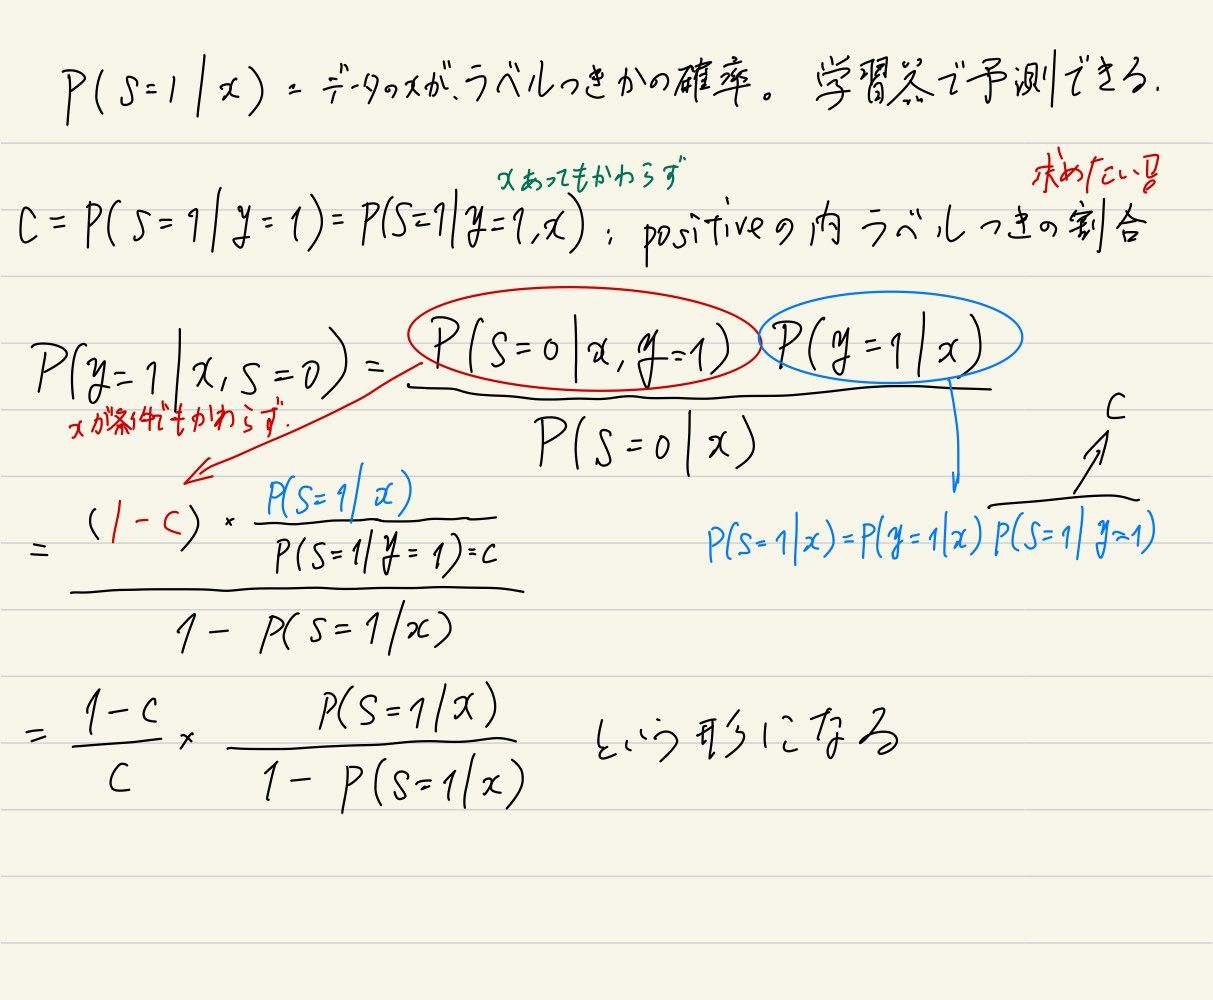 P(S=1|x) = データのxが、ラベルつきかの確率。 学習器で予測できる.
xあってもかわらず 求めたい!!
C = P(S=1|y=1) = P(S=1|y=1,x) : positiveの内 ラベルつきの割合
P(S=0|x,y=1) P(y=1|x)
P(y=1|x,S=0) =
P(S=0|x)
xが条件でもかわらず.
C
(1-C) × P(S=1|x)
=
P(S=1|y=1)=C
P(S=1|x)=P(y=1|x) P(S=1|y=1)
1 - P(S=1|x)
= 1-C × P(S=1|x) という形になる
C 1 - P(S=1|x)